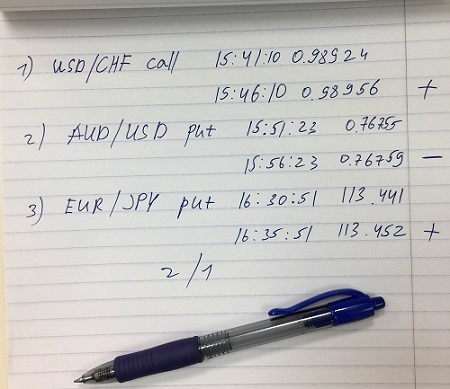 1) USD/CHF call 15:41:10 0.98924
15:46:10 0.98956 +
2) AUD/USD put 15:51:23 0.76755
15:56:23 0.76759 −
3) EUR/JPY put 16:30:51 113.441
16:35:51 113.452 +
2/1